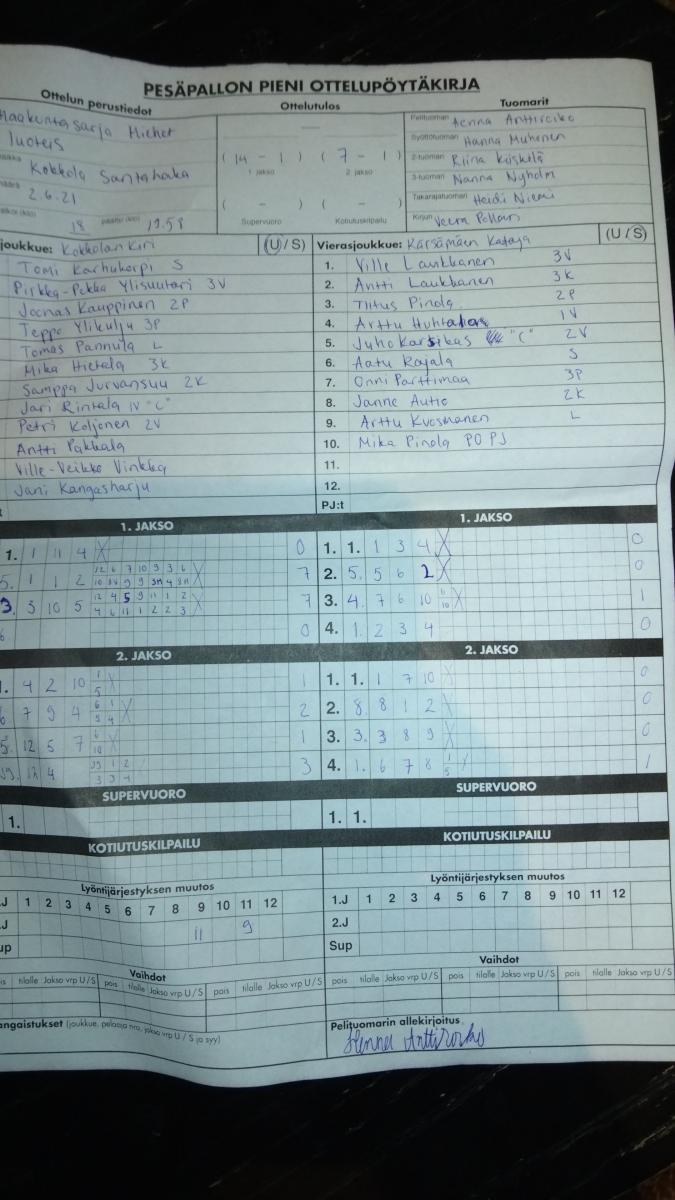 PESÄPALLON PIENI OTTELUPÖYTÄKIRJA
Ottelun perustiedot
Ottelutulos
Tuomarit
Maakuntasarja Miehet
Kokkola Santahaka
2.6.21
18 päättyi (klo) 19.58
( 14 - 1 ) ( 7 - 1 )
1. jakso 2. jakso
( - ) ( - )
Supervuoro Kotiutuskilpailu
Pelituomari Henna Anttiroiko
Syöttötuomari Hanna Muhonen
2-tuomari Riina Kiiskilä
3-tuomari Nanna Nyholm
Takarajatuomari Heidi Niemi
Kirjuri Veera
joukkue: Kokkolan Kiri (U / S)
Tomi Karhukorpi S
Pirkka-Pekka Ylisuutari 3V
Joonas Kauppinen 2P
Teppo Ylikulju 3P
Tomas Pannula L
Mika Hietala 3K
Samppa Jurvansuu 2K
Jari Rintala 1V "C"
Petri Koljonen 2V
Antti Pakkala
Ville-Veikko Vinkka
Jani Kangasharju
Vierasjoukkue: Kärsämäen Kataja (U / S)
1. Ville Laukkanen 3V
2. Antti Laukkanen 3K
3. Tiitus Pinola 2P
4. Arttu Huhtala 1V
5. Juho Karsikas "C" 2V
6. Aatu Rajala S
7. Onni Parttimaa 3P
8. Janne Autio 2K
9. Arttu Kuosmanen L
10. Mika Pinola PO PJ
11.
12.
PJ:t
1. JAKSO
1. 1 11 4 X 0
5. 1 1 2 X 7
3. 3 10 5 X 7
6 0
1. JAKSO
1. 1. 1 3 4 X 0
2. 5. 5 6 2 X 0
3. 4. 7 6 10 11 10 X 1
4. 1. 2 3 4 0
2. JAKSO
1. 4 2 10 1 5 X 1
6 7 9 4 6 1 5 4 X 2
5. 12 5 7 6 10 X 1
12 4 3
2. JAKSO
1. 1. 1 7 10 X 0
2. 8. 8 1 2 X 0
3. 3. 3 8 9 X 0
4. 1. 6 7 8 1 5 X 1
SUPERVUORO
1.
SUPERVUORO
1. 1.
KOTIUTUSKILPAILU
KOTIUTUSKILPAILU
Lyöntijärjestyksen muutos
.J 1 2 3 4 5 6 7 8 9 10 11 12
.J 11 9
up
Lyöntijärjestyksen muutos
1.J 1 2 3 4 5 6 7 8 9 10 11 12
2.J
Sup
Vaihdot
is tilalle Jakso vrp U / S pois tilalle Jakso vrp U / S pois tilalle Jakso vrp U / S
Vaihdot
pois tilalle Jakso vrp U / S pois tilalle Jakso vrp U / S pois tilalle Jakso vrp U / S
angaistukset (joukkue, pelaaja nro, jakso vrp U / S ja syy)
Pelituomarin allekirjoitus
Henna Anttiroiko